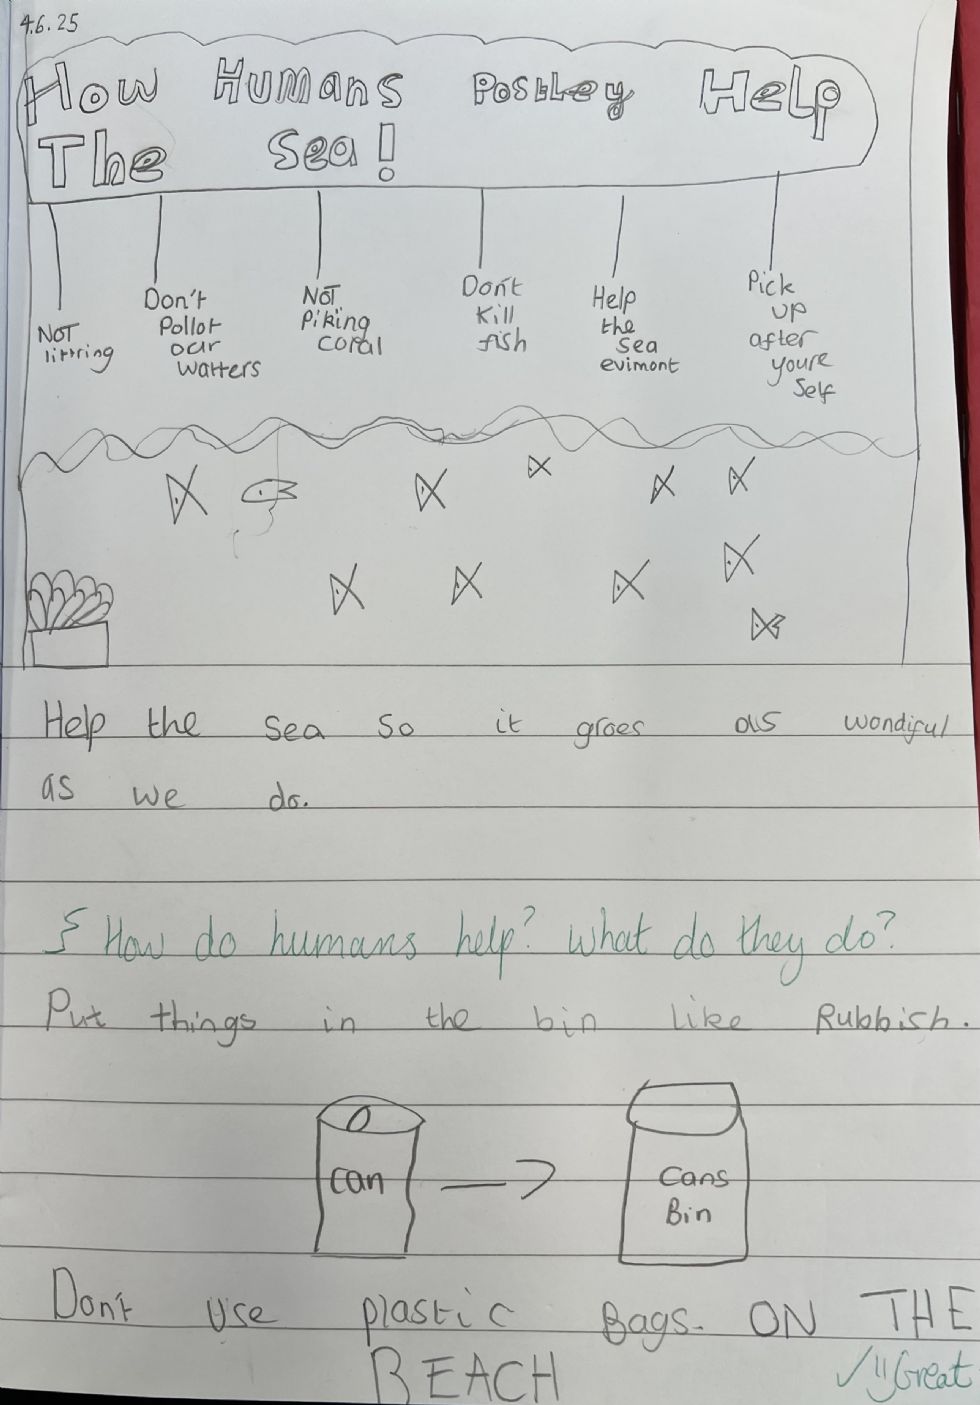 4.6.25
How Humans Postley Help
The Sea!
Not
littring
Don't
Pollot
our
watters
Not
Piking
coral
Don't
Kill
fish
Help
the
sea
evimont
Pick
up
after
youre
Self
Help the sea so it groes as wondiful
as we do.
How do humans help? What do they do?
Put things in the bin like Rubbish.
can
Cans
Bin
Don't use plastic Bags. ON THE
BEACH
Great